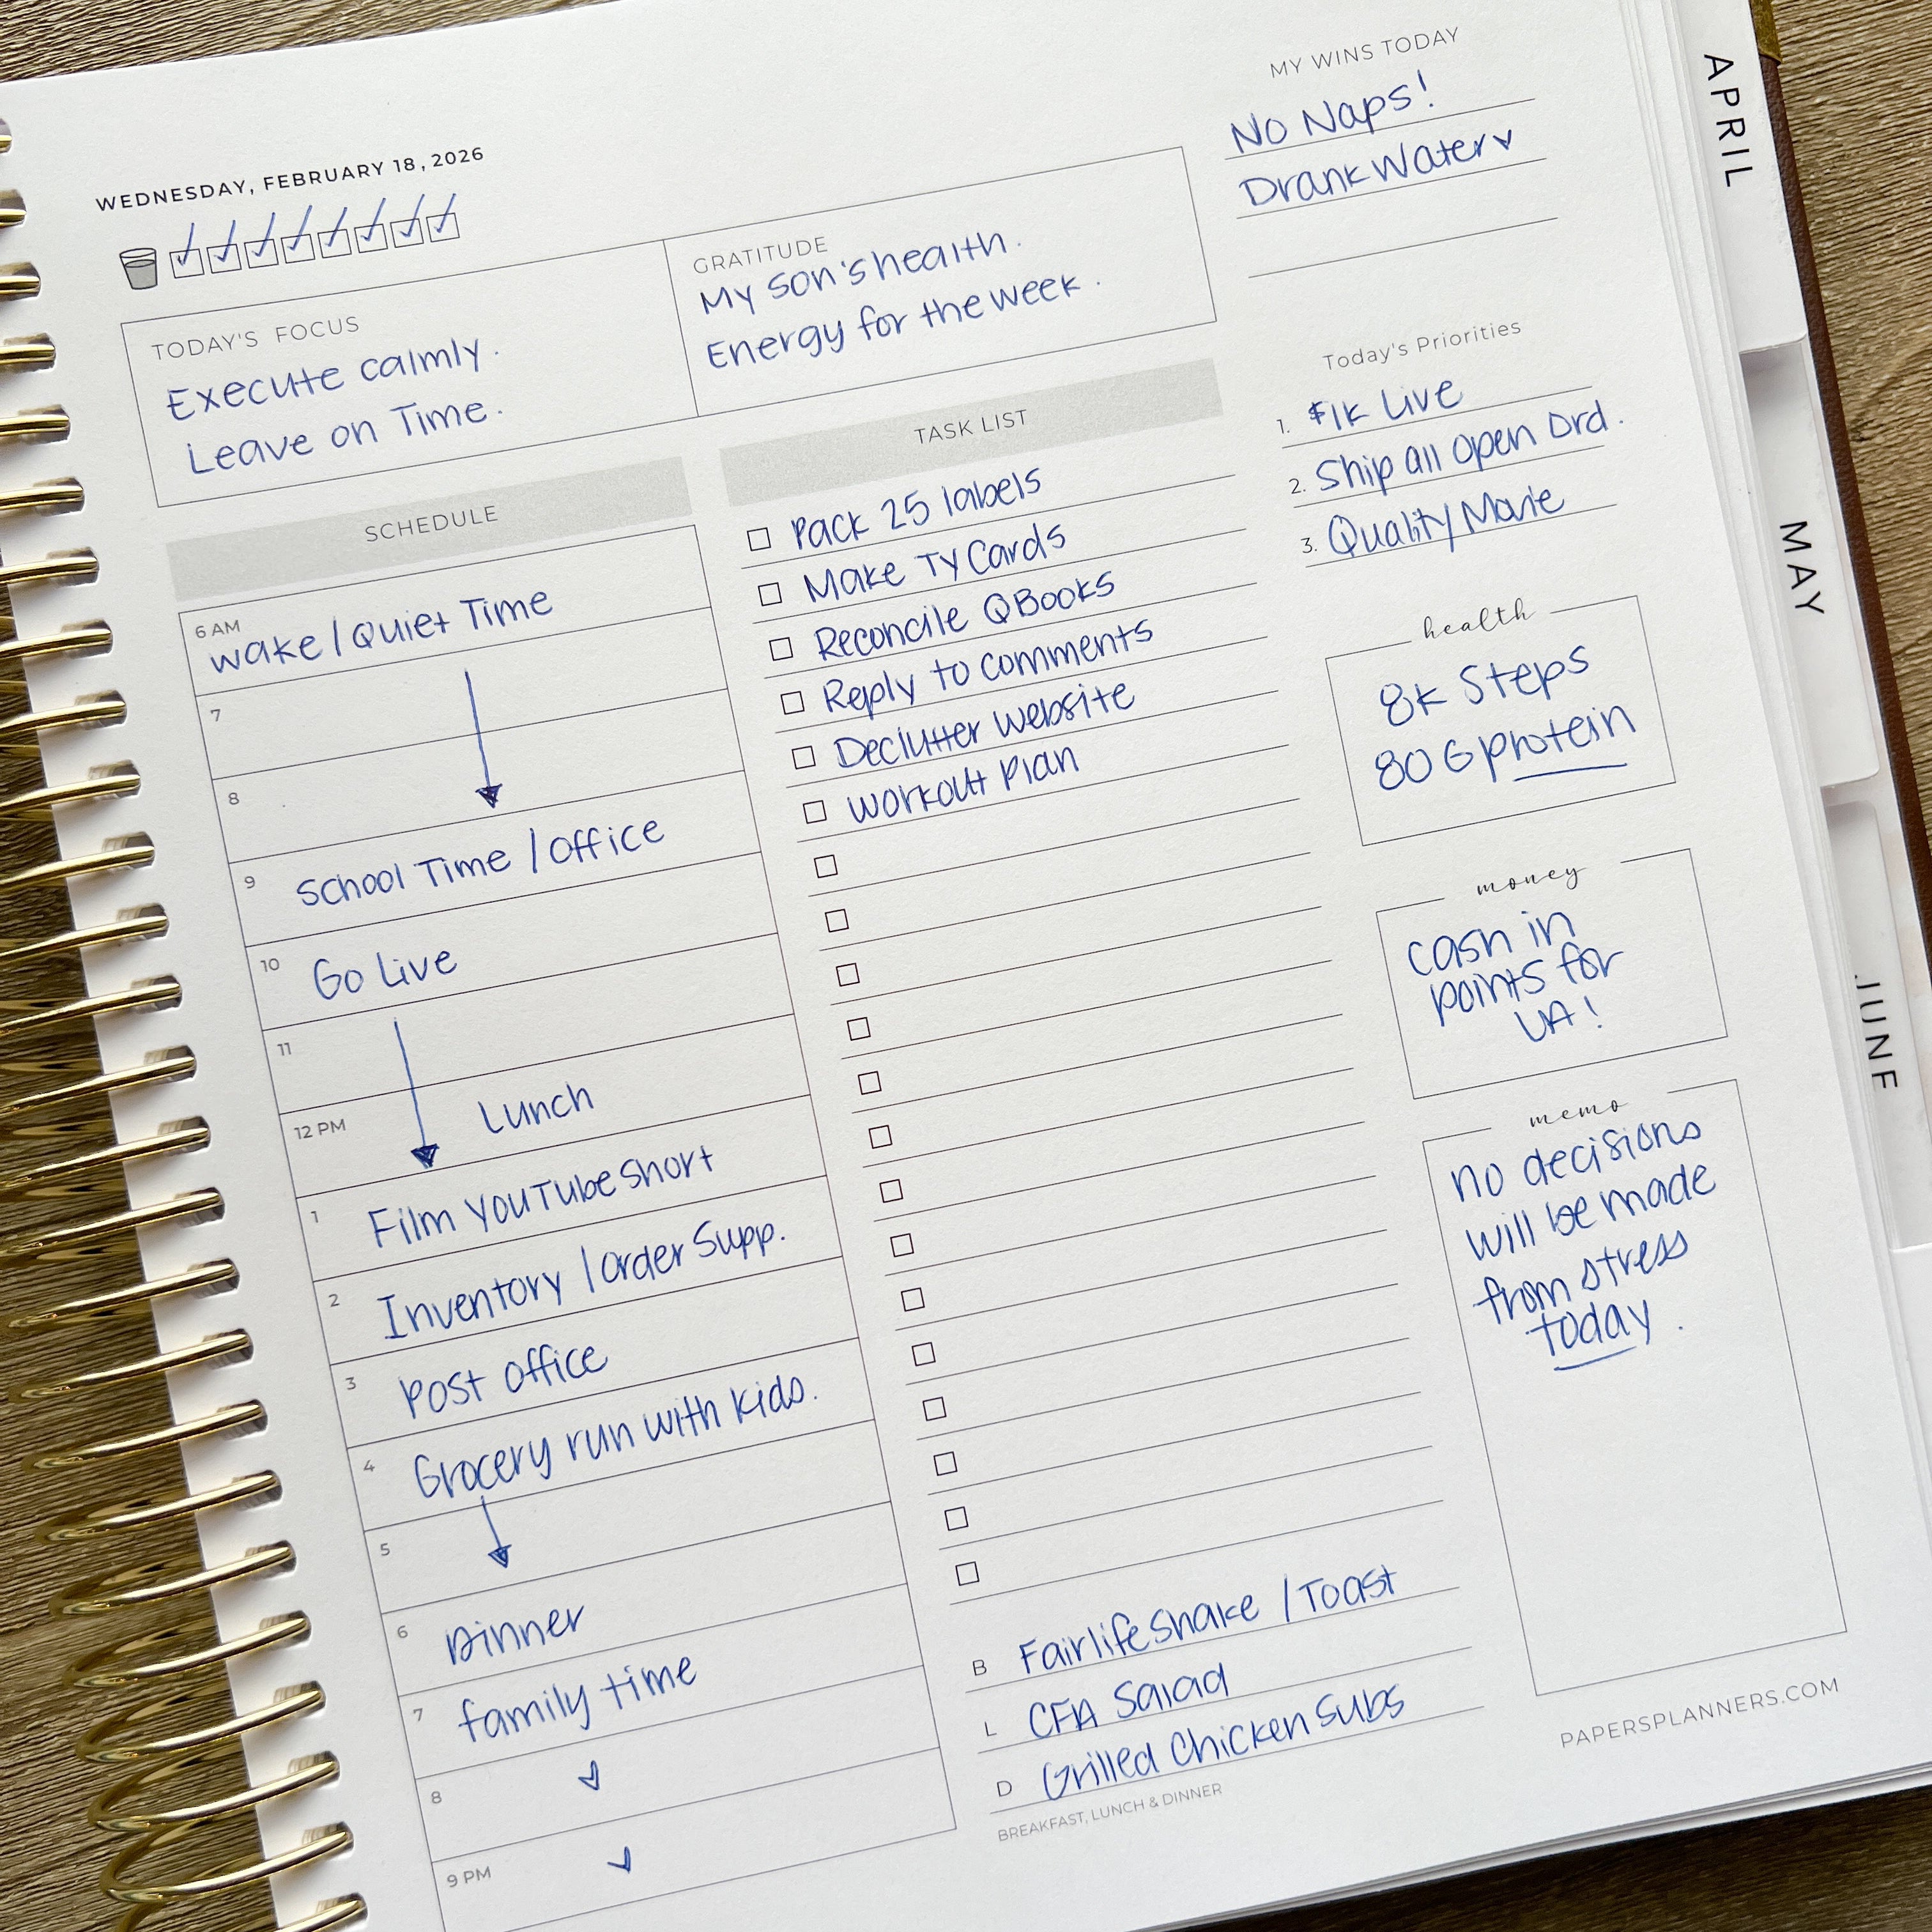 WEDNESDAY, FEBRUARY 18, 2026
TODAY'S FOCUS
Execute calmly.
Leave on Time.
GRATITUDE
My son's health.
Energy for the week.
MY WINS TODAY
No Naps!
Drank Water
SCHEDULE
6 AM
Wake / Quiet Time
7
8
9 School Time / Office
10 Go Live
11
12 PM Lunch
1 Film YouTube Short
2 Inventory / Order Supp.
3 Post Office
4 Grocery run with kids.
5
6 Dinner
7 family time
8
9 PM
TASK LIST
Pack 25 labels
Make TY Cards
Reconcile QBooks
Reply to comments
Declutter website
Workout Plan
B Fairlife Shake / Toast
L CFA Salad
D Grilled Chicken Subs
BREAKFAST, LUNCH & DINNER
Today's Priorities
1. $1K Live
2. Ship all open Ord.
3. Quality Movie
health
8K Steps
80 G protein
money
cash in
points for
UA!
memo
no decisions
will be made
from stress
today.
PAPERSPLANNERS.COM
APRIL
MAY
JUNE